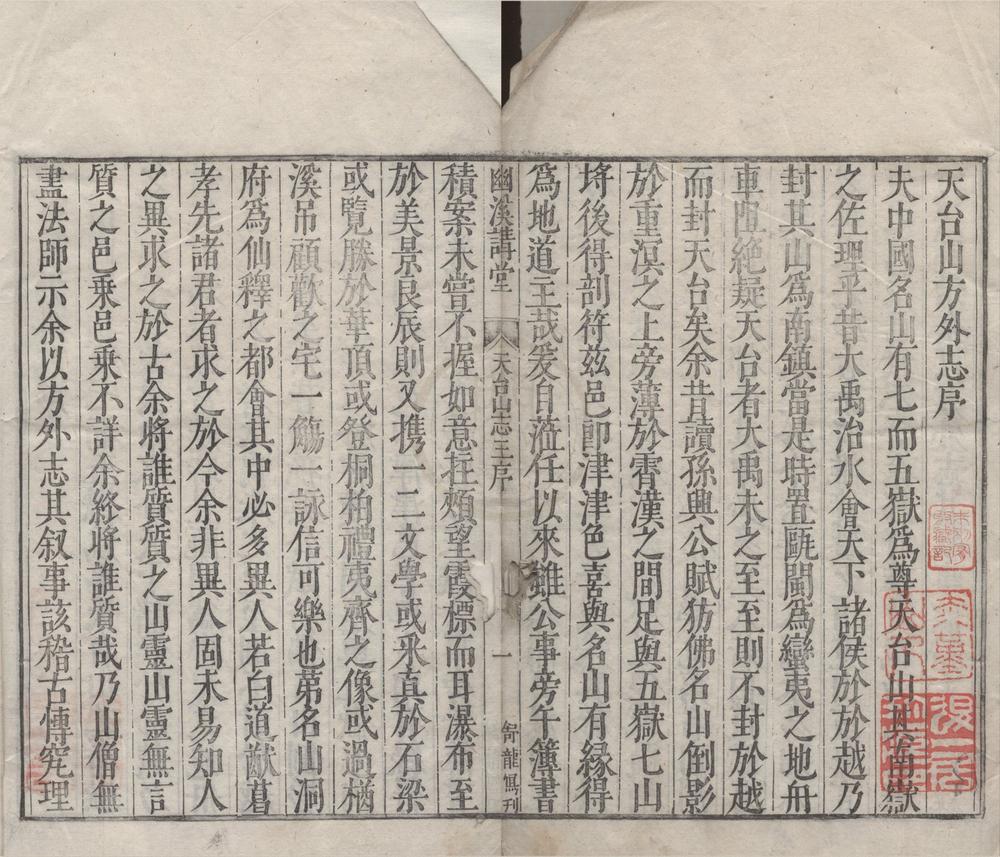 天台山方外志序
夫中國名山有七而五嶽爲尊天台山其南嶽
之佐理乎昔大禹治水會天下諸侯於於越乃
封其山爲南鎮當是時置甌閩爲蠻夷之地舟
車阻絶疑天台者大禹未之至至則不封於越
而封天台矣余昔讀孫興公賦彷彿名山倒影
於重溟之上旁薄於霄漢之間足與五嶽七山
埓後得剖符茲邑卽津津色喜與名山有緣得
爲地道主哉爰自蒞任以來雖公事旁午簿書
幽溪講堂
天台山志王序
一
積案未嘗不握如意拄頰望霞標而耳瀑布至
於美景良辰則又携一二文學或采真於石梁
或覽勝於華頂或登桐柏禮夷齊之像或過楢
溪吊顧歡之宅一觴一詠信可樂也第名山洞
府爲仙釋之都會其中必多異人若白道猷葛
孝先諸君者求之於今余非異人固未易知人
之異求之於古余將誰質質之山靈山靈無言
質之邑乘邑乘不詳余終將誰質哉乃山僧無
盡法師示余以方外志其叙事該稽古博究理